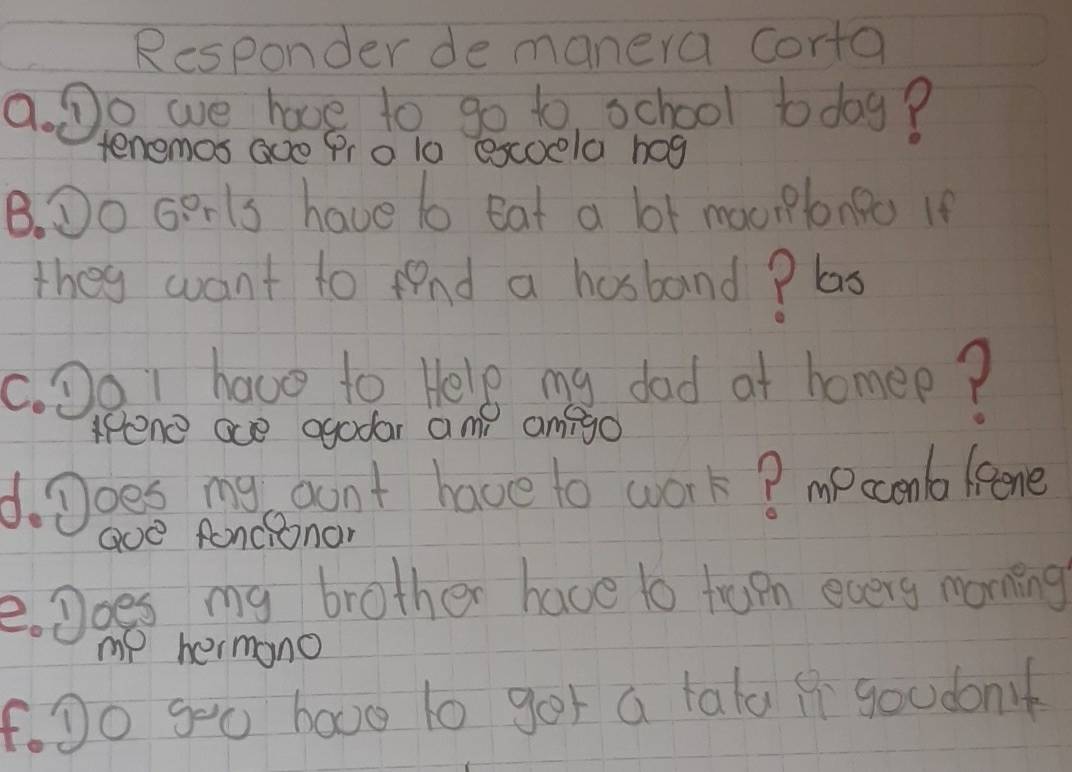 Responder de manera corta
a. Do we have to go to school today?
tenemos que ir a la escuela hoy
B. Do Girls have to Eat a lot if
they want to find a husband? las
c. Do i have to Help my dad at home?
tiene que ayudar a mi amigo
d. Does my aunt have to work? mi tiene
que funcionar
e. Does my brother have to train every morning
mi hermano
f. Do you have to get a if you don't